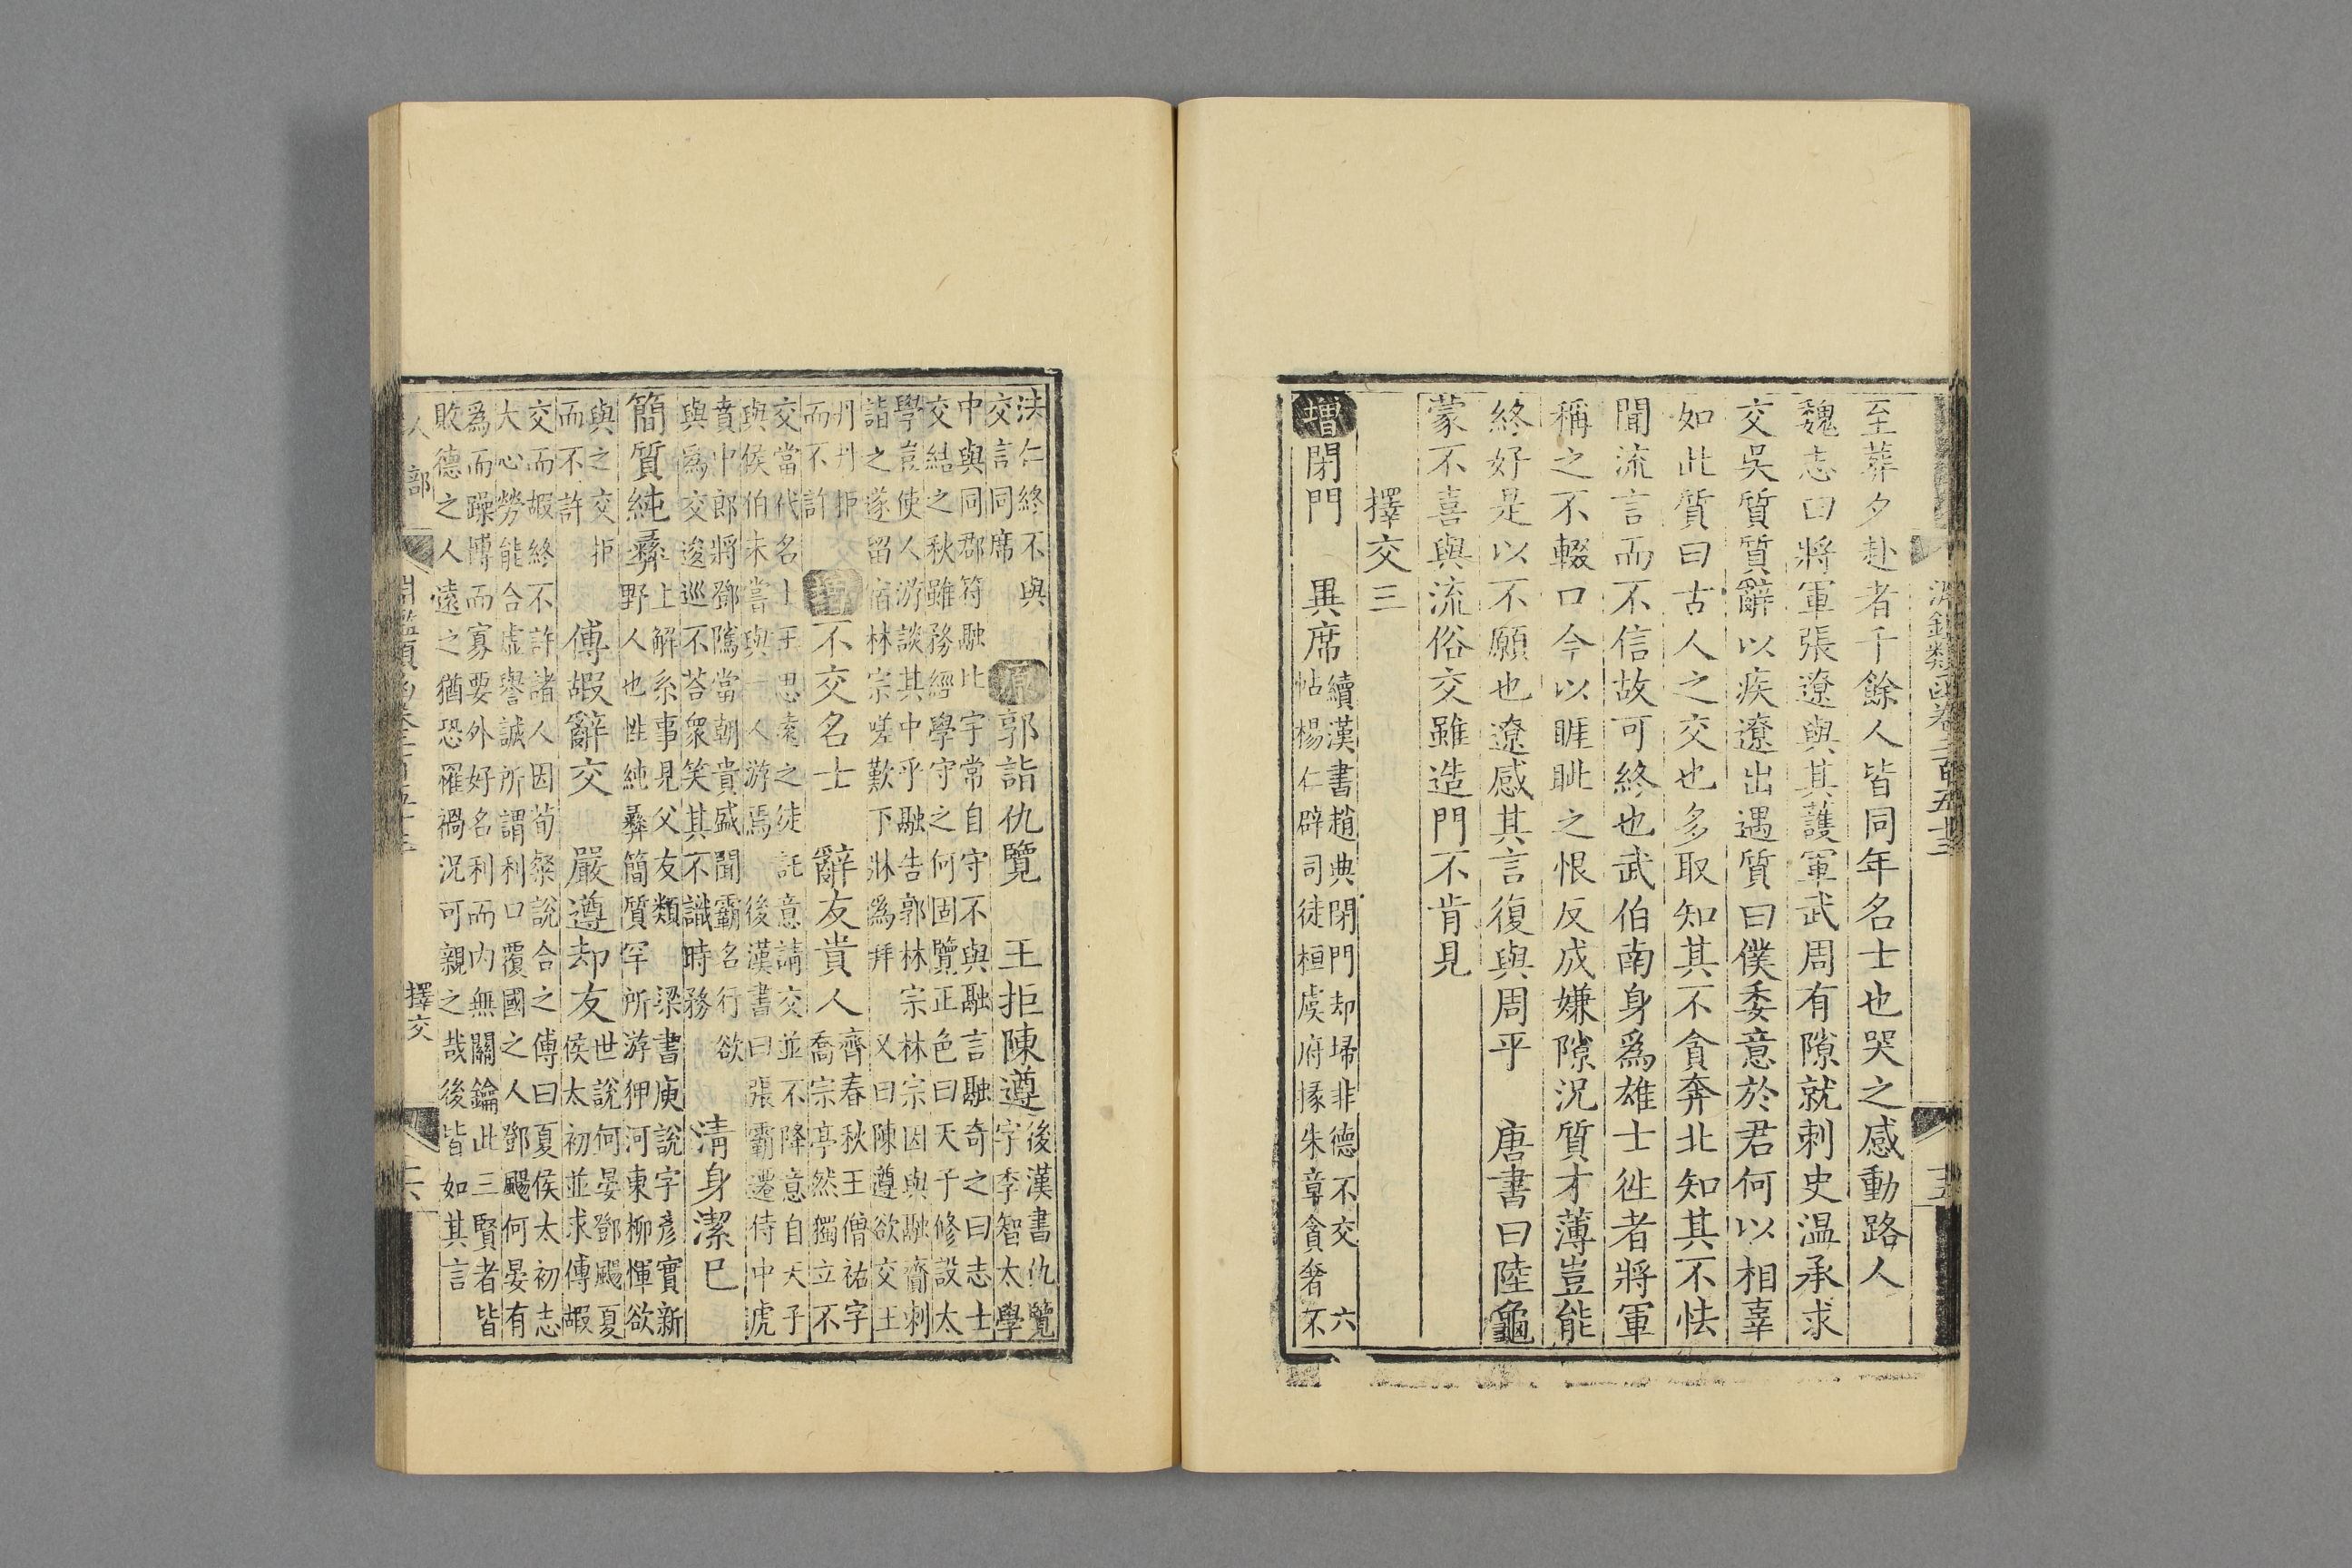 淵鑑類函卷二百五十三
至葬夕赴者千餘人皆同年名士也哭之感動路人
魏志曰將軍張遼與其護軍武周有隙就刺史温承求
交吳質質辭以疾遼出遇質曰僕委意於君何以相辜
如此質曰古人之交也多取知其不貪奔北知其不怯
聞流言而不信故可終也武伯南身爲雄士徃者將軍
稱之不輟口今以睚眦之恨反成嫌隙況質才薄豈能
終好是以不願也遼感其言復與周平 唐書曰陸龜
蒙不喜與流俗交雖造門不肯見
擇交三
增閉門 異席
續漢書趙典閉門却埽非德不交 六
帖楊仁辟司徒桓虞府掾朱章貪奢不
法仁終不與
交言同席
原郭詣仇覽 王拒陳遵
後漢書仇覽
字季智太學
中與同郡符融比宇常自守不與融言融奇之曰志士
交結之秋雖務經學守之何固覽正色曰天子修設太
學豈使人游談其中乎融告郭林宗林宗因與融齎刺
詣之遂留宿林宗嗟歎下牀爲拜 又曰陳遵欲交王
丹丹拒
而不許
增不交名士 辭友貴人
齊春秋王僧祐字
喬宗亭然獨立不
交當代名士王思遠之徒託意請交並不降意自天子
與侯伯未嘗與一人游焉 後漢書曰張霸遷侍中虎
賁中郎將鄧隲當朝貴盛聞霸名行欲
與爲交逡巡不荅衆笑其不識時務
清身潔已
簡質純彝
梁書庾說字彥寶新
野人也性純彝簡質罕所游狎河東柳惲欲
與之交拒
而不許
傅嘏辭交 嚴遵却友
世說何晏鄧颺夏
侯太初並求傅嘏
交而嘏終不許諸人因荀粲說合之傅曰夏侯太初志
大心勞能合虛譽誠所謂利口覆國之人鄧颺何晏有
爲而躁博而寡要外好名利而內無關鑰此三賢者皆
敗德之人遠之猶恐罹禍況可親之哉後皆如其言
人部
擇交